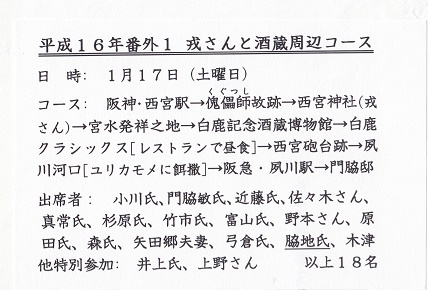 平成１６年番外１ 戎さんと酒蔵周辺コース
日　時:　１月１７日（土曜日）
くぐつし
コース:　阪神･西宮駅→傀儡師故跡→西宮神社(戎
さん)→宮水発祥之地→白鹿記念酒蔵博物館→白鹿
クラシックス[レストランで昼食]→西宮砲台跡→夙
川河口[ユリカモメに餌撒]→阪急･夙川駅→門脇邸
出席者:　小川氏､門脇敏氏､近藤氏､佐々木さん､
真常氏､杉原氏､竹市氏､富山氏､野本さん､原
田氏､森氏､矢田郷夫妻､弓倉氏､脇地氏､木津
他特別参加:　井上氏､上野さん　　以上１８名